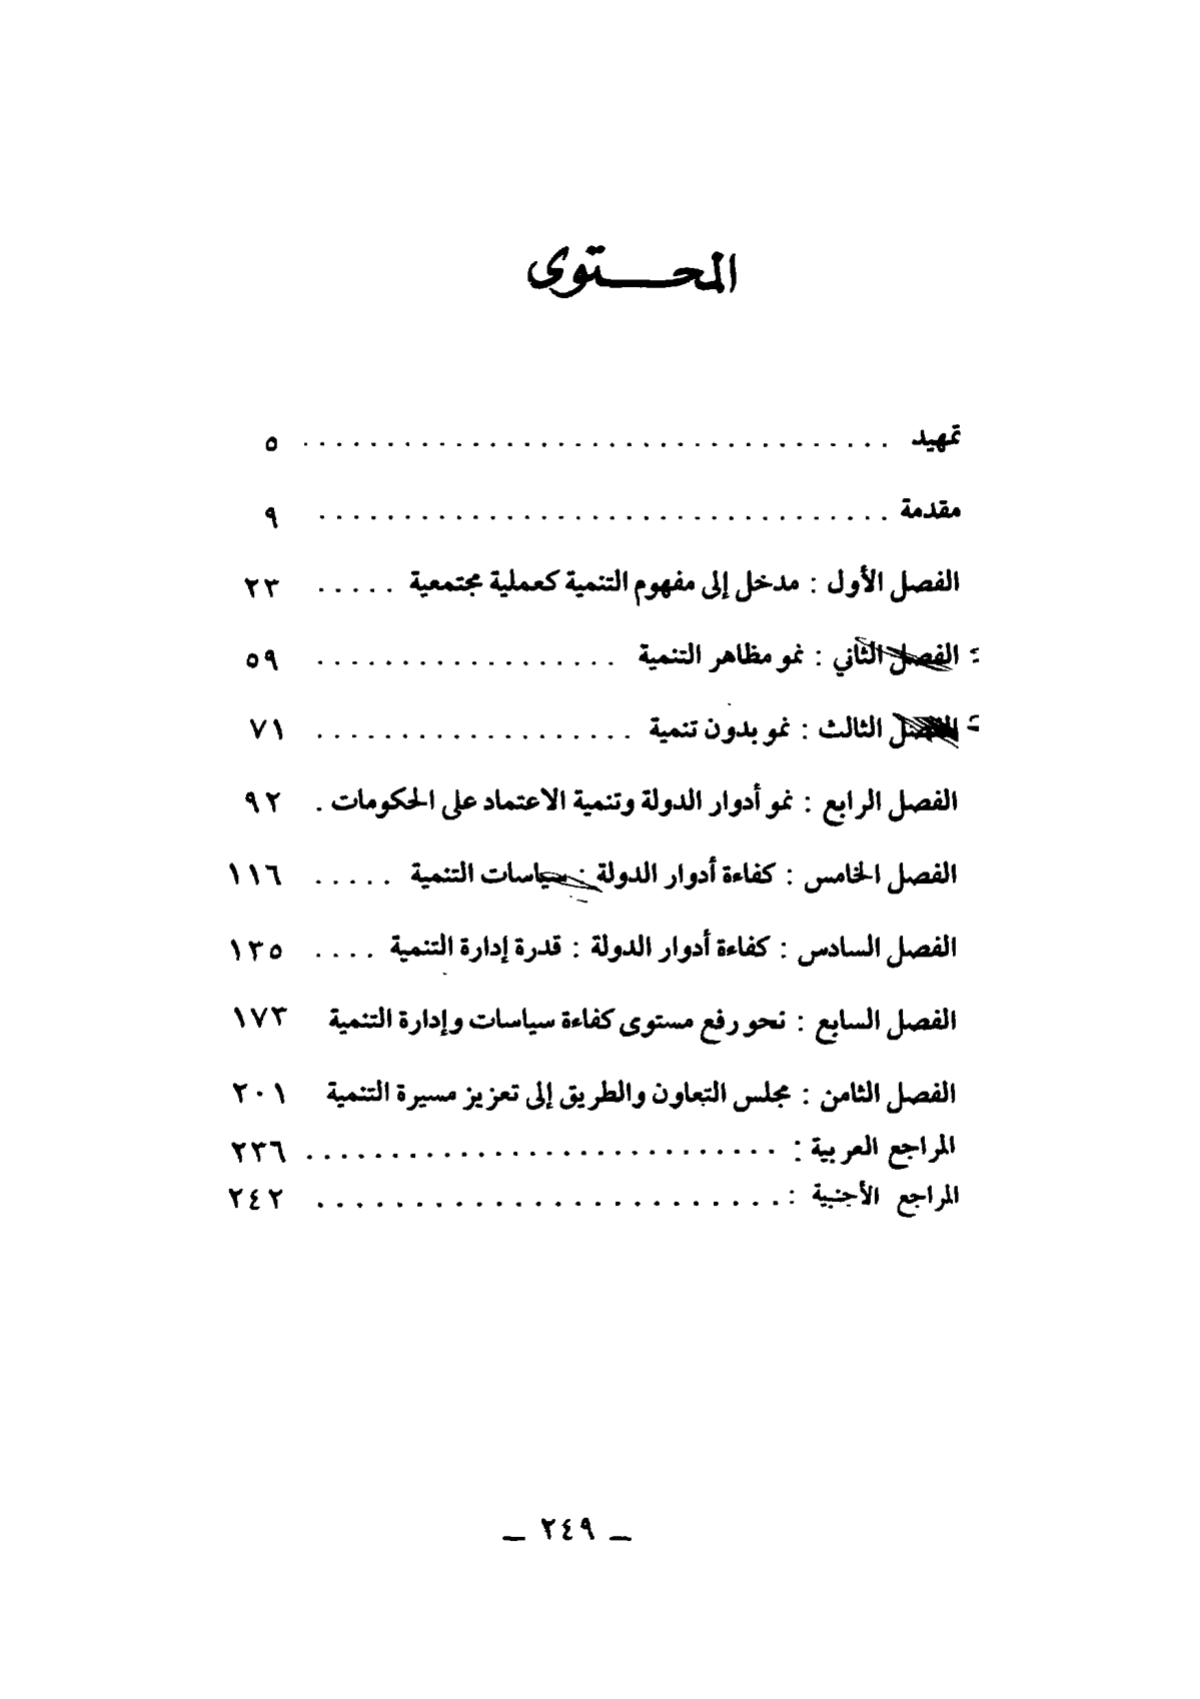 المحتوى
تمهيد . . . . . . . . . . . . . . . . . . . . . . . . . . . . . . . . . . . ٥
مقدمة . . . . . . . . . . . . . . . . . . . . . . . . . . . . . . . . . . ٩
الفصل الأول : مدخل إلى مفهوم التنمية كعملية مجتمعية . . . . . ٢٣
الفصل الثاني : نمو مظاهر التنمية . . . . . . . . . . . . . . . . . . ٥٩
الفصل الثالث : نمو بدون تنمية . . . . . . . . . . . . . . . . . . . ٧١
الفصل الرابع : نمو أدوار الدولة وتنمية الاعتماد على الحكومات . ٩٢
الفصل الخامس : كفاءة أدوار الدولة : سياسات التنمية . . . . . ١١٦
الفصل السادس : كفاءة أدوار الدولة : قدرة إدارة التنمية . . . . ١٣٥
الفصل السابع : نحو رفع مستوى كفاءة سياسات وإدارة التنمية ١٧٣
الفصل الثامن : مجلس التعاون والطريق إلى تعزيز مسيرة التنمية ٢٠١
المراجع العربية : . . . . . . . . . . . . . . . . . . . . . . . . . . . . ٢٣٦
المراجع الأجنبية : . . . . . . . . . . . . . . . . . . . . . . . . ٢٤٢
ــ ٢٤٩ ــ